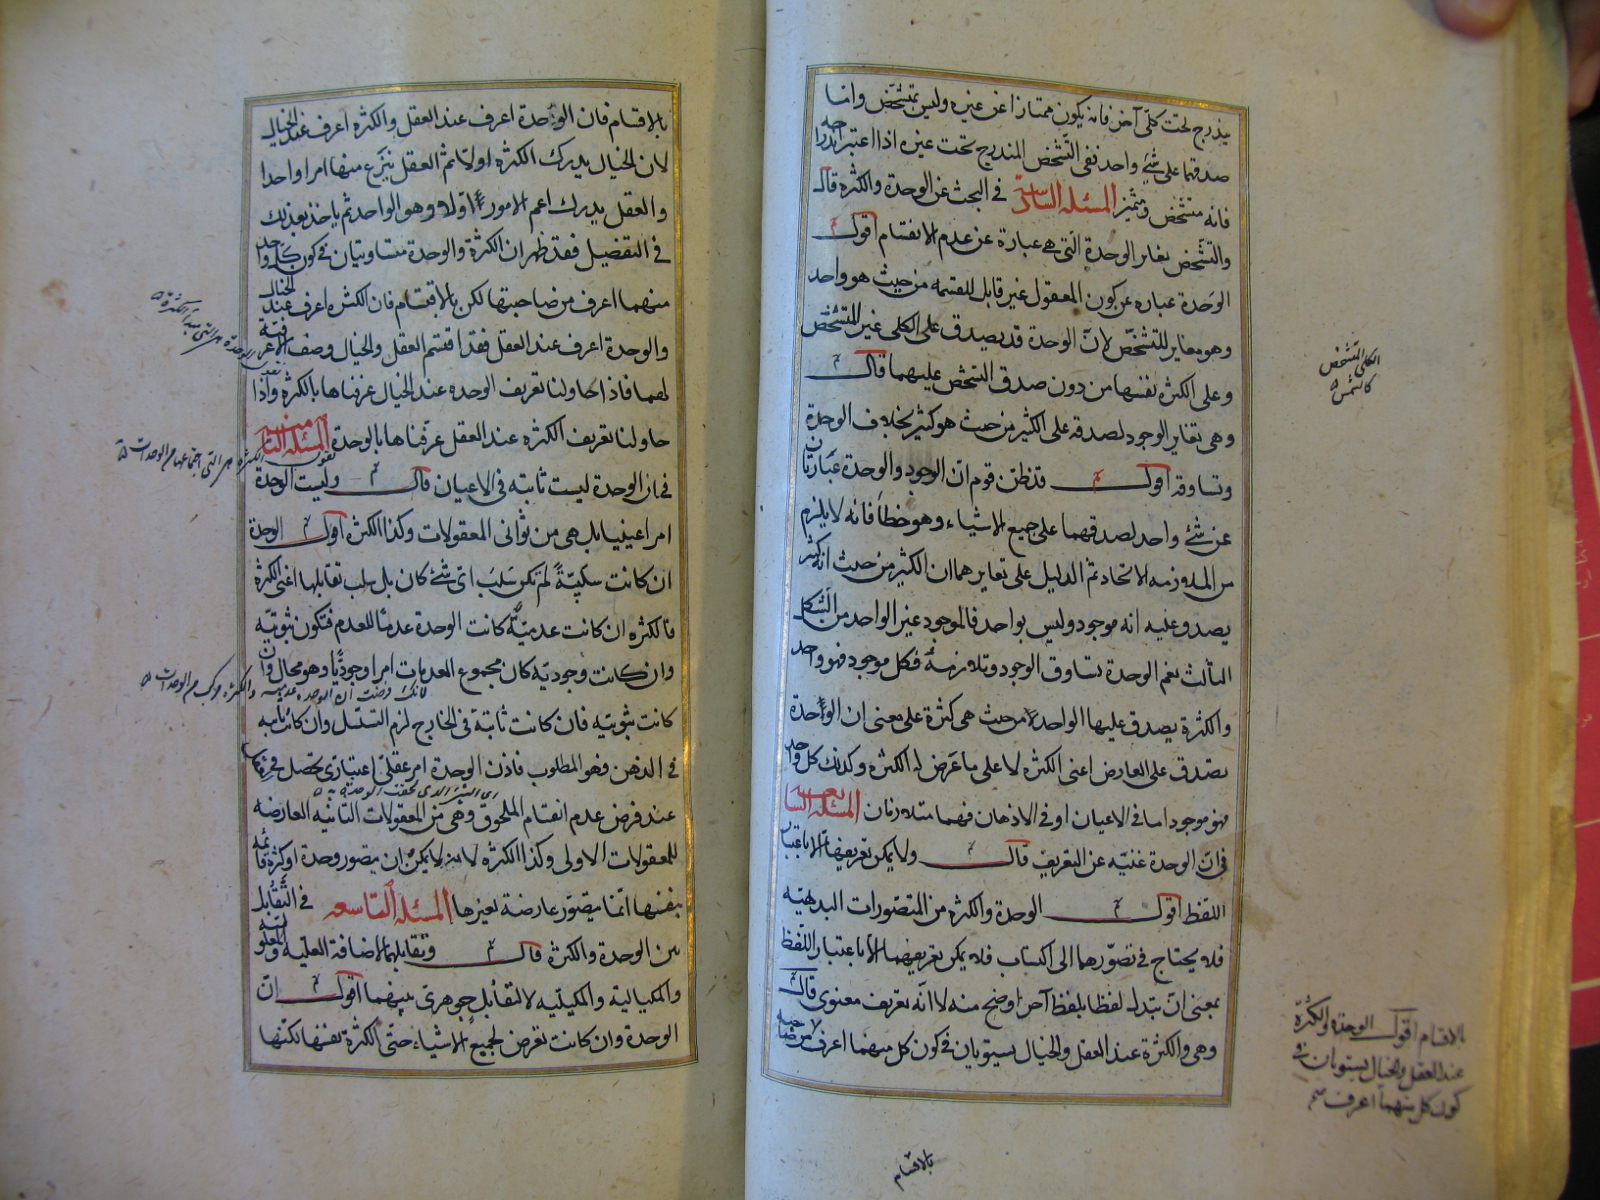 يندرج تحت كلي آخر فانه يكون ممتازا عن غيره وليس بمتشخص وانما
صدقهما على شيء واحد ففي التشخص المندرج تحت غيره اذا اعتبر اندراجه
فانه متشخص ومتميز المسئلة السادسة في البحث عن الوحدة والكثرة قال
والتشخص يغاير الوحدة التي هي عبارة عن عدم الانقسام اقول
الوحدة عبارة عن كون المعقول غير قابل للقسمة من حيث هو واحد
وهو مغاير للتشخص لان الوحدة قد يصدق على الكلي غير المتشخص
وعلى الكثرة نفسها من دون صدق التشخص عليهما قال
وهي تغاير الوجود لصدقه على الكثير من حيث هو كثير بخلاف الوحدة
وتساوقه اقول قد ظن قوم ان الوجود والوحدة عبارتان
عن شيء واحد لصدقهما على جميع الاشياء وهو خطأ فانه لا يلزم
من الملازمة الاتحاد ثم الدليل على تغايرهما ان الكثير من حيث انه كثير
يصدق عليه انه موجود وليس بواحد فالموجود غير الواحد من الشكل
الثالث نعم الوحدة تساوق الوجود وتلازمه فكل موجود فهو واحد
والكثرة يصدق عليها الواحد لا من حيث هي كثرة على معنى ان الوحدة
تصدق على العارض اعني الكثرة لا على ما عرض له الكثرة وكذلك كل واحد
فهو موجود اما في الاعيان او في الاذهان فهما متلازمان المسئلة السابعة
في ان الوحدة غنية عن التعريف قال ولا يمكن تعريفها الا باعتبار
اللفظ اقول الوحدة والكثرة من المتصورات البديهية
فلا يحتاج في تصورهما الى اكتساب فلا يمكن تعريفهما الا باعتبار اللفظ
بمعنى ان يبدل لفظا بلفظ آخر اوضح منه لا انه تعريف معنوي قال
وهي والكثرة عند العقل والخيال يستويان في كون كل منهما اعرف من صاحبه
بالاقسام
الكلي المتشخص
كالشمس
بالاقسام اقول الوحدة والكثرة
عند العقل والخيال يستويان في
كون كل منهما اعرف
بالاقسام فان الوحدة اعرف عند العقل والكثرة اعرف عند الخيال
لان الخيال يدرك الكثرة اولا ثم العقل ينزع منها امرا واحدا
والعقل يدرك اعم الامور اولا وهو الواحد ثم ياخذ بعد ذلك
في التفصيل فقد ظهر ان الكثرة والوحدة متساويتان في كون كل واحد
منهما اعرف من صاحبتها لكن بالاقتسام فان الكثرة اعرف عند الخيال
والوحدة اعرف عند العقل فقد اقتسم العقل والخيال وصف الاعرفية
لهما فاذا حاولنا تعريف الوحدة عند الخيال عرفناها بالكثرة واذا
حاولنا تعريف الكثرة عند العقل عرفناها بالوحدة المسئلة الثامنة
في ان الوحدة ليست ثابتة في الاعيان قال وليست الوحدة
امرا عينيا بل هي من ثواني المعقولات وكذا الكثرة اقول الوحدة
ان كانت سلبية لم تكن سلب اي شيء كان بل سلب مقابلها اعني الكثرة
فالكثرة ان كانت عدمية كانت الوحدة عدما للعدم فتكون ثبوتية
وان كانت وجودية كان مجموع العدمات امرا وجوديا وهو محال وان
كانت ثبوتية فان كانت ثابتة في الخارج لزم التسلسل وان كانت ثابتة
في الذهن فهو المطلوب فاذن الوحدة امر عقلي اعتباري تحصل
عند فرض عدم انقسام الملحوق وهي من المعقولات الثانية العارضة
للمعقولات الاولى وكذا الكثرة لانه لا يمكن ان يتصور وحدة او كثرة قائمة
بنفسها انما يتصور عارضة لغيرها المسئلة التاسعة في التقابل
بين الوحدة والكثرة قال وتقابلهما لاضافة العلية والمعلولية
والمكيالية والمكيلية لا لتقابل جوهري بينهما اقول ان
الوحدة وان كانت تعرض لجميع الاشياء حتى الكثرة نفسها لكنها